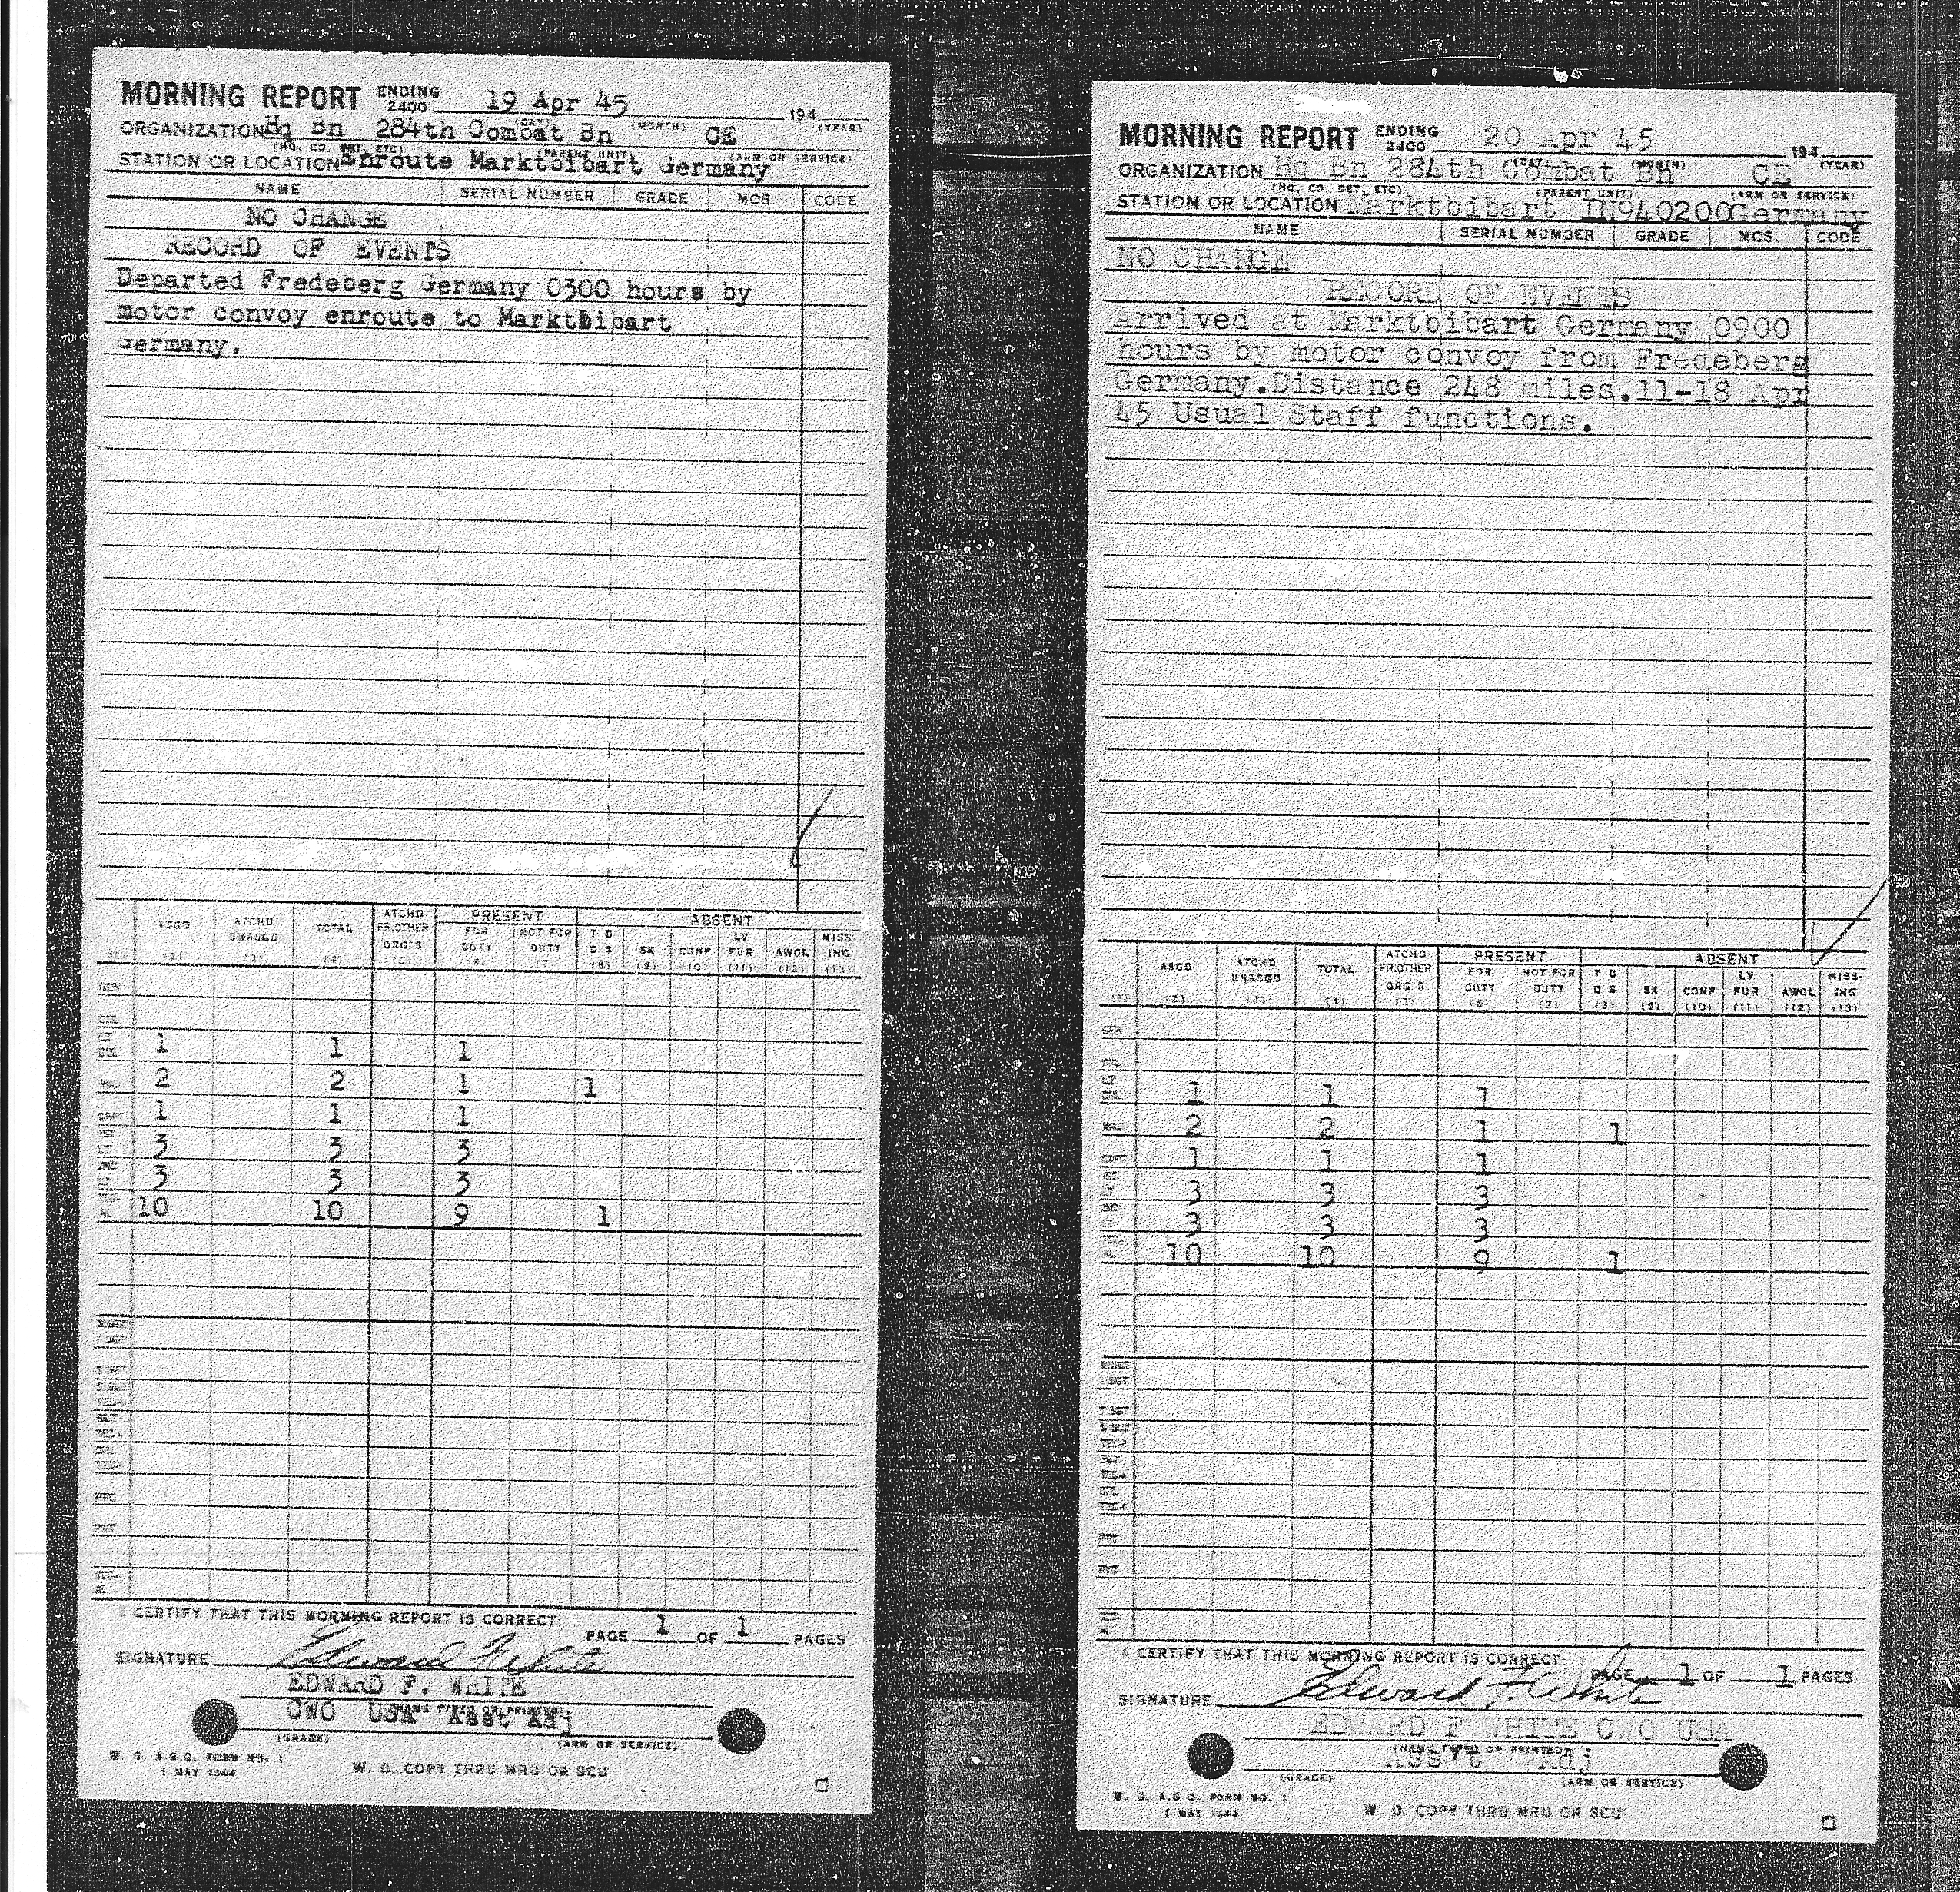 MORNING REPORT ENDING 2400 19 Apr 45 194
(DAY) (MONTH) (YEAR)
ORGANIZATION Hq Bn 284th Combat Bn CE
(HQ. CO. DET. ETC) (PARENT UNIT) (ARM OR SERVICE)
STATION OR LOCATION Enroute Marktbibart Germany
NAME SERIAL NUMBER GRADE MOS. CODE
NO CHANGE
RECORD OF EVENTS
Departed Fredeberg Germany 0300 hours by
motor convoy enroute to Marktbibart
Germany.
PRESENT ABSENT
ASGD ATCHD UNASGD TOTAL ATCHD FR.OTHER ORG'S FOR DUTY NOT FOR DUTY T D D S SK CONF LV FUR AWOL MISSING
(2) (3) (4) (5) (6) (7) (8) (9) (10) (11) (12) (13)
1 1 1
2 2 1 1
1 1 1
3 3 3
3 3 3
10 10 9 1
I CERTIFY THAT THIS MORNING REPORT IS CORRECT:
PAGE 1 OF 1 PAGES
SIGNATURE Edward F. White
EDWARD F. WHITE
(NAME TYPED OR PRINTED)
CWO USA Asst Adj
(GRADE) (ARM OR SERVICE)
W. D. A.G.O. FORM NO. 1
1 MAY 1944
W. D. COPY THRU MRU OR SCU
MORNING REPORT ENDING 2400 20 Apr 45 194
(DAY) (MONTH) (YEAR)
ORGANIZATION Hq Bn 284th Combat Bn CE
(HQ. CO. DET. ETC) (PARENT UNIT) (ARM OR SERVICE)
STATION OR LOCATION Marktbibart IN940200 Germany
NAME SERIAL NUMBER GRADE MOS. CODE
NO CHANGE
RECORD OF EVENTS
Arrived at Marktbibart Germany 0900
hours by motor convoy from Fredeberg
Germany.Distance 248 miles.11-18 Apr
45 Usual Staff functions.
PRESENT ABSENT
ASGD ATCHD UNASGD TOTAL ATCHD FR.OTHER ORG'S FOR DUTY NOT FOR DUTY T D D S SK CONF LV FUR AWOL MISS-ING
(2) (3) (4) (5) (6) (7) (8) (9) (10) (11) (12) (13)
1 1 1
2 2 1 1
1 1 1
3 3 3
3 3 3
10 10 9 1
I CERTIFY THAT THIS MORNING REPORT IS CORRECT:
PAGE 1 OF 1 PAGES
SIGNATURE Edward F. White
EDWARD F WHITE CWO USA
(NAME TYPED OR PRINTED)
Ass't Adj
(GRADE) (ARM OR SERVICE)
W. D. A.G.O. FORM NO. 1
1 MAY 1944
W. D. COPY THRU MRU OR SCU